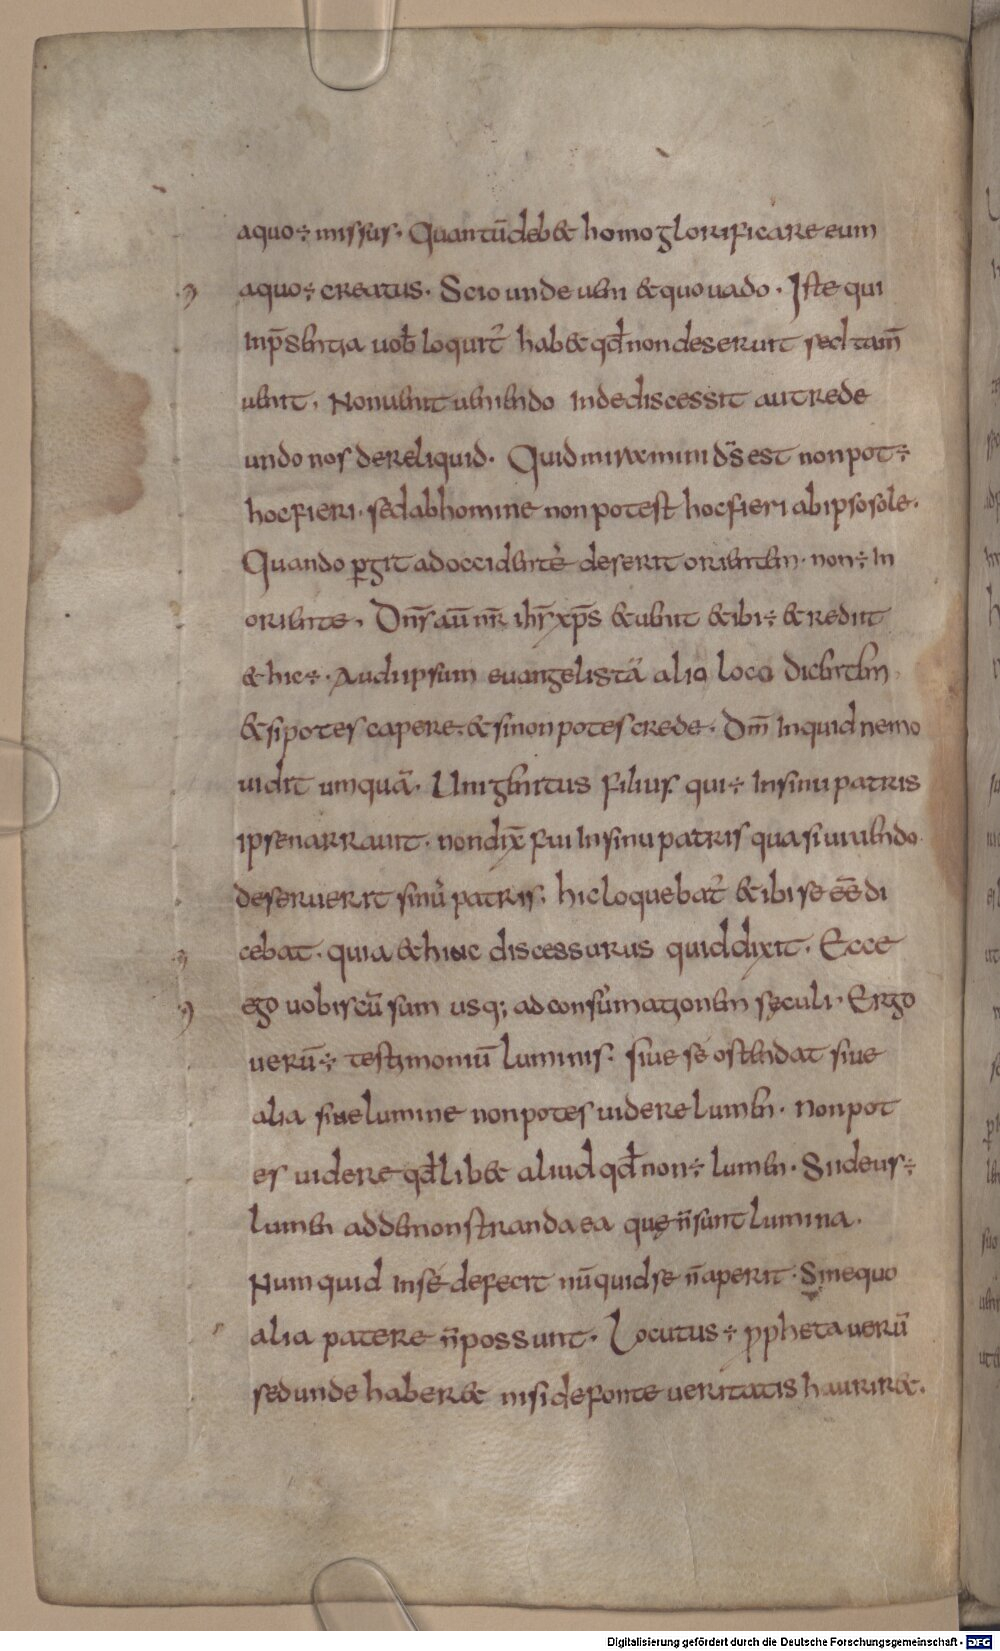 aquo÷ missus. Quantū deb& homo glorificare eum
aquo÷ creatus. Scio unde ueni &quo uado. Iste qui
inp̄sentia uob̄ loquit̄ hab& qd̄ non deseruit sed tam̄
uenit. Non uenit ueniendo inde discessit aut rede
undo nos dereliquid. Quid miraemini d̄s est non pot÷
hoc fieri. sed ab homine non potest hoc fieri ab ipso sole.
Quando p̄git ad occidentē deserit orientem. non÷ in
oriente. Dn̄s aū nr̄ ih̄s xp̄s &uenit &ibi÷ &rediit
&hic÷. Audi ipsum euangelistā alio loco dicentem
&si potes capere. &si non potes crede. Dm̄ inquid nemo
uidit umquā. Unigenitus filius qui÷ in sinu patris
ipse narrauit. non dix̄ fui in sinu patris quasi uiuendo
deseruerit sinū patris. hic loquebat̄ &ibi se eē di
cebat. quia &hinc discessurus quid dixit. Ecce
ego uobiscū sum usq; ad consūmationem sęculi. Ergo
uerū÷ testimoniū luminis. siue se ostendat siue
alia siue lumine non potes uidere lumen. Non pot
es uidere qd̄ lib& aliud qd̄ non÷ lumen. Si ideus÷
lumen ad demonstranda ea quę n̄ sunt lumina.
Numquid in se defecit nūquid se n̄ aperit. Sine quo
alia patere n̄ possunt. Locutus÷ ꝓpheta uerū
sed unde haber& nisi de fonte ueritatis haurir&.
Digitalisierung gefördert durch die Deutsche Forschungsgemeinschaft - DFG